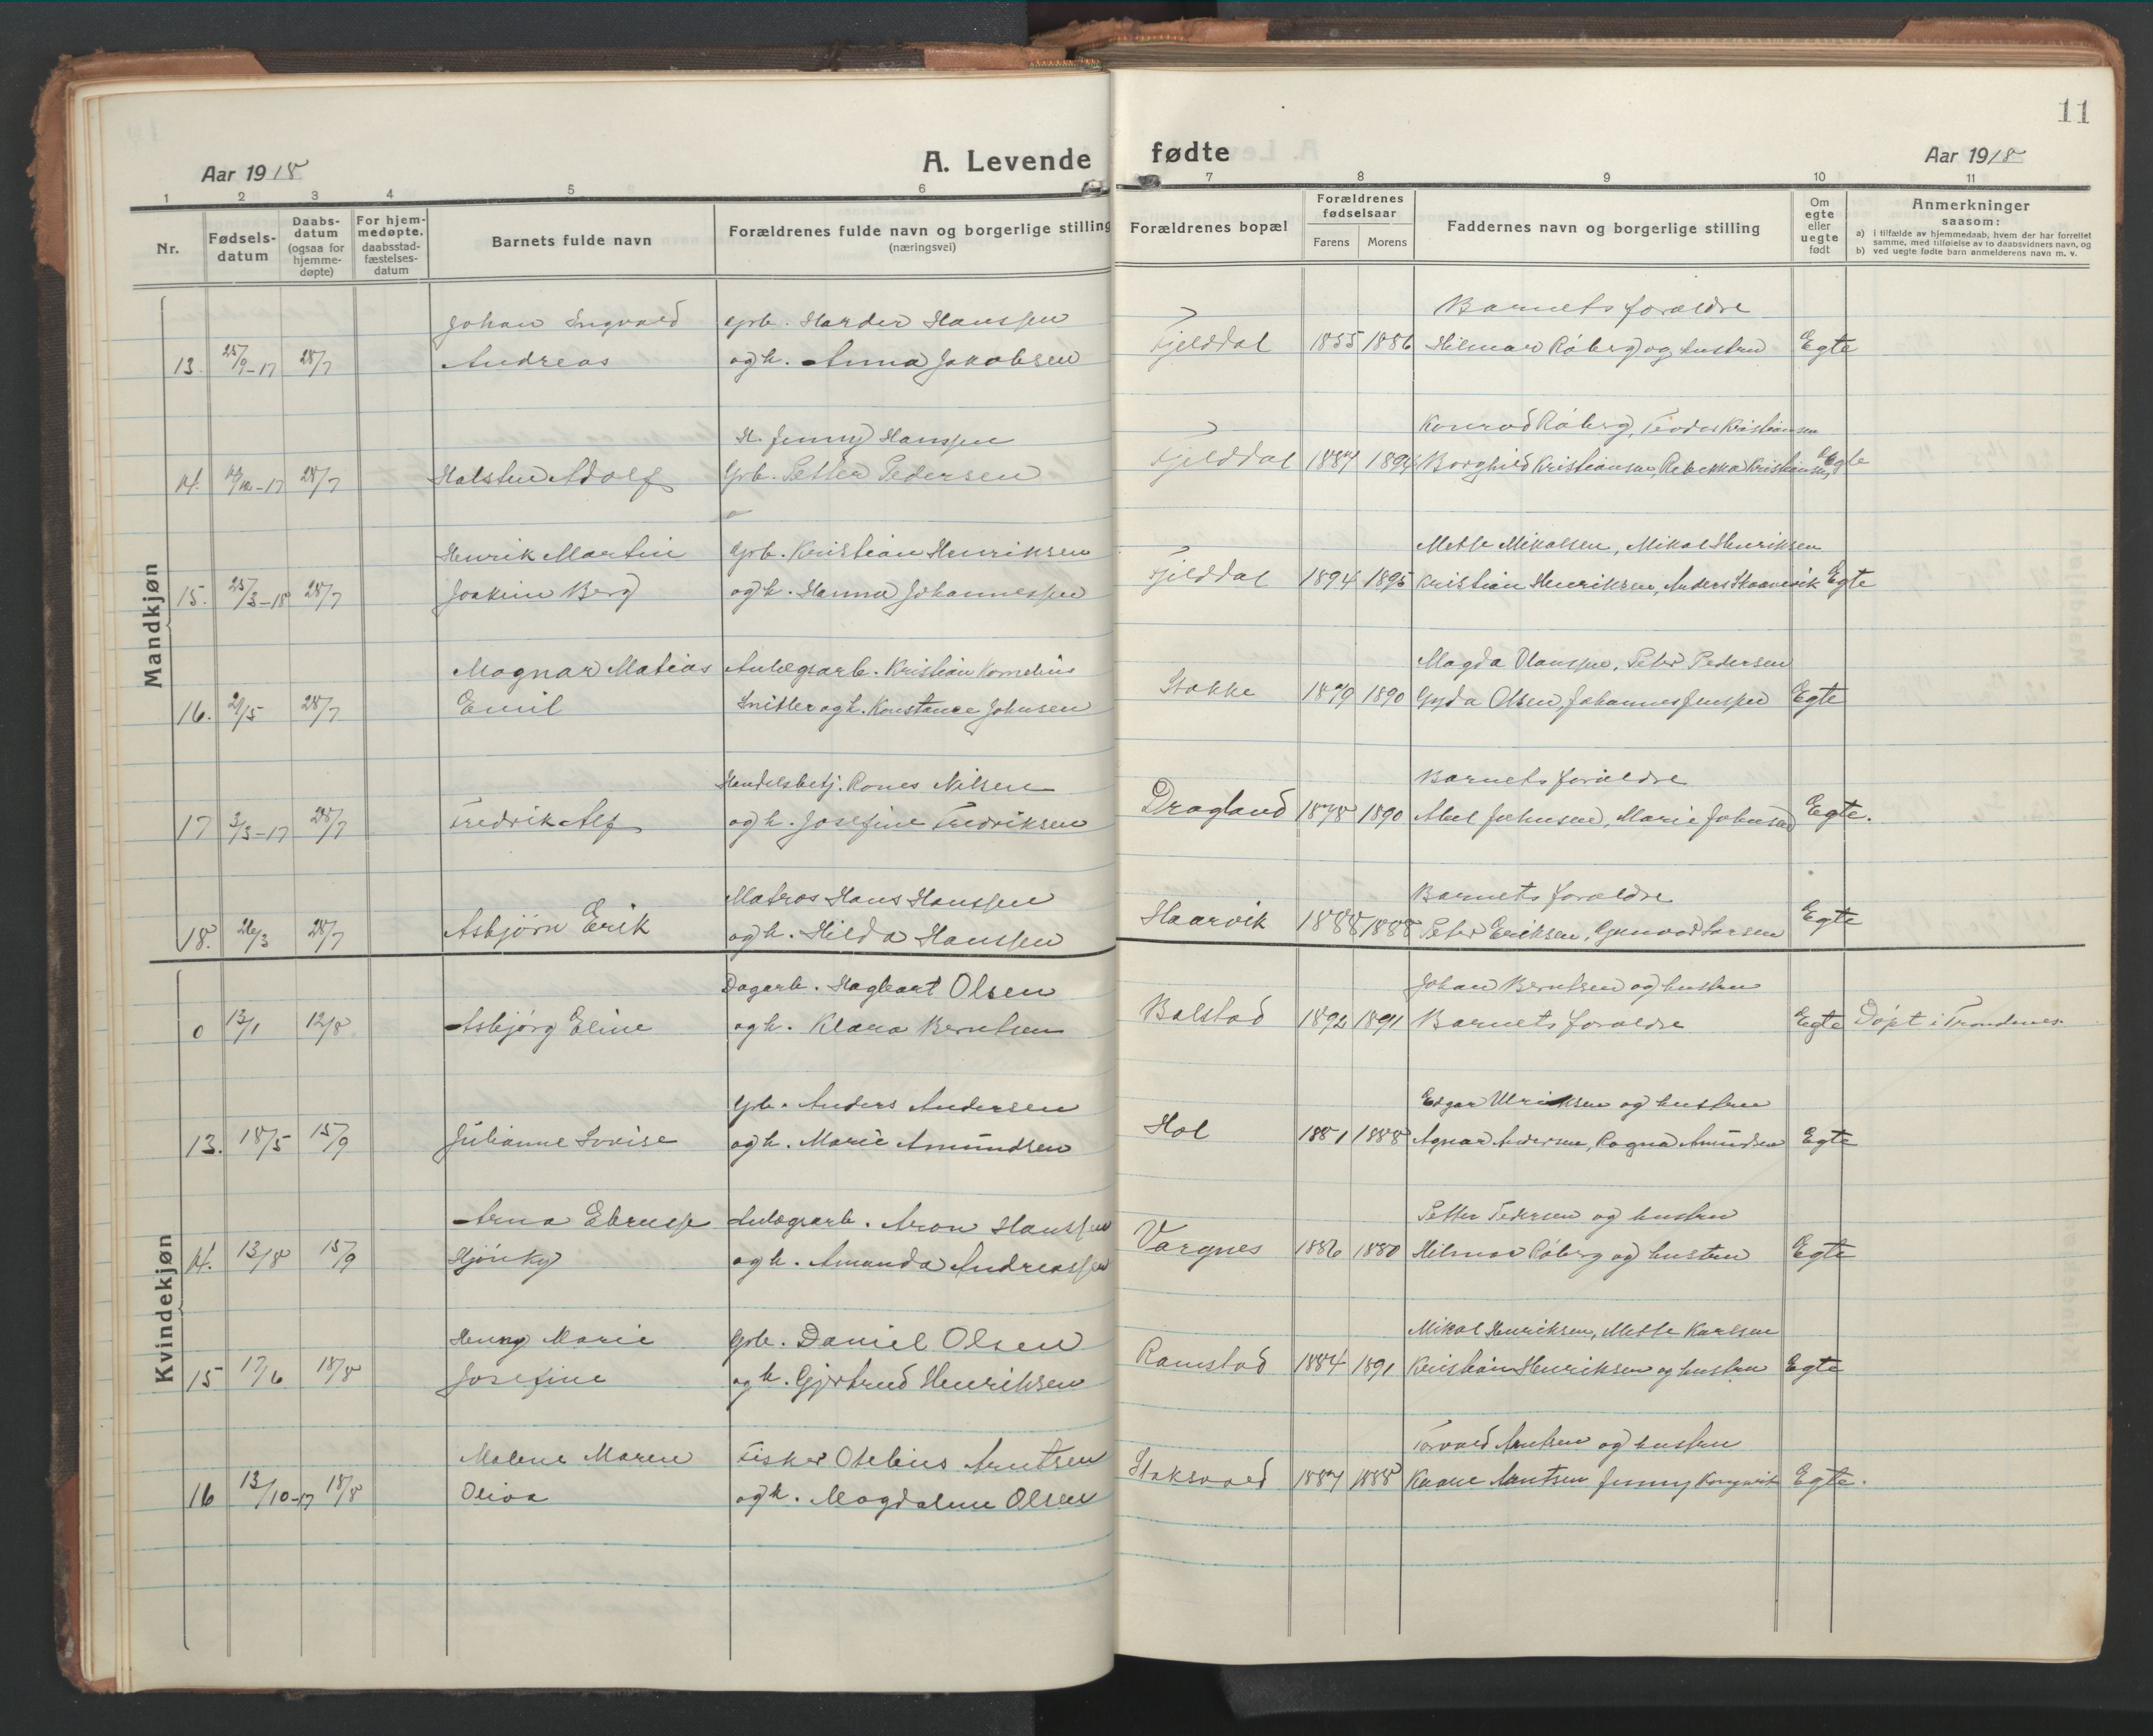 11
Aar 1918
A. Levende fødte
Aar 1918
1 2 3 4 5 6 7 8 9 10 11
Nr.
Fødsels-
datum
Daabs-
datum
(ogsaa for
hjemme-
døpte)
For hjem-
medøpte.
daabsstad-
fæstelses-
datum
Barnets fulde navn
Forældrenes fulde navn og borgerlige stilling
(næringsvei)
Forældrenes bopæl
Forældrenes
fødselsaar
Farens Morens
Faddernes navn og borgerlige stilling
Om
egte
eller
uegte
født
Anmerkninger
saasom:
a) i tilfælde av hjemmedaab, hvem der har forrettet
samme, med tilføielse av to daabsvidners navn, og
b) ved uegte fødte barn anmelderens navn m. v.
Mandkjøn
Johan Ingvald Grb. Harder Hanssen Barnets forældre
13. 25/9-17 28/7 Andreas og h. Anna Jakobsen Fjelddal 1855 1886 Hilmar Råberg og hustru Egte
H. Jenny Hanssen Konrad Råberg, Teodor Kristiansen
14. 28/7 Halsten Adolf Grb. Petter Pedersen Fjelddal 1887 1894 Borghild Kristiansen, Rebekka Kristiansen, Egte
Henrik Martin Grb. Kristian Henriksen Mette Mikalsen, Mikal Henriksen
15. 25/3-18 28/7 Joakim Berg og h. Hanna Johannessen Fjelddal 1894 1895 Kristian Henriksen, Anders Skaanevik Egte
Magnar Matias Anlægsarb. Kristian Kornelius Magda Hanssen, Peter Pedersen
16. 21/5 28/7 Emil Snitler og h. Konstance Johnsen Stokke 1879 1890 Gyda Olsen, Johannes Jenssen Egte
Handelsbetj. Rones Nilsen Barnets forældre
17 3/3-17 28/7 Fredrik Alf og h. Josefine Fredriksen Dragland 1878 1890 Abel Johnsen, Marie Johnsen Egte.
Matros Hans Hanssen Barnets forældre
18. 26/3 28/7 Asbjørn Erik og h. Hilda Hanssen Haarvik 1888 1888 Peter Eriksen, Gunvor Larsen Egte
Kvindekjøn
Dagarb. Hagbart Olsen Johan Berntsen og hustru
0 13/1 12/8 Asbjørg Eline og h. Klara Berntsen Balstad 1892 1891 Barnets forældre Egte Døpt i Trondenes.
Grb. Anders Andersen Edgar Ulriksen og hustru
13. 18/5 15/9 Julianne Lovise og h. Marie Amundsen Hol 1881 1888 Agnar Andersen, Ragna Amundsen Egte
Arna Anlægsarb. Aron Hanssen Petter Pedersen og hustru
14. 13/8 15/9 og h. Amanda Andreassen Vargnes 1886 1880 Hilmar Råberg og hustru Egte
Henny Marie Grb. Daniel Olsen Mikal Henriksen, Mette Karlsen
15 17/6 18/8 Josefine og h. Gjertrud Henriksen Ramstad 1884 1891 Kristian Henriksen og hustru Egte
Malene Maren Fisker Otelius Arntsen Torvald Arntsen og hustru
16 13/10-17 18/8 Oliva og h. Magdalene Olsen Staksvold 1887 1888 Kaare Arntsen Jenny Egte.